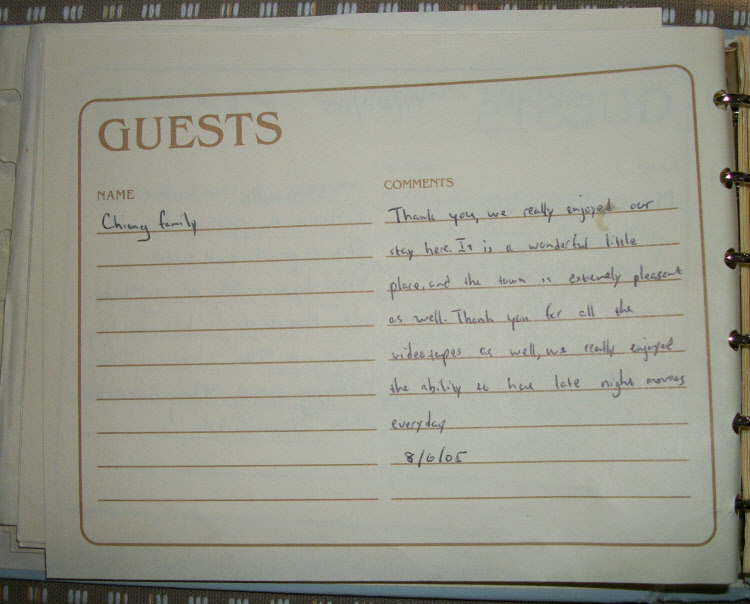 GUESTS
NAME
COMMENTS
Chiang family
Thank you, we really enjoyed our
stay here. It is a wonderful little
place, and the town is extremely pleasant
as well. Thank you for all the
videotapes as well, we really enjoyed
the ability to have late night movies
everyday
8/6/05